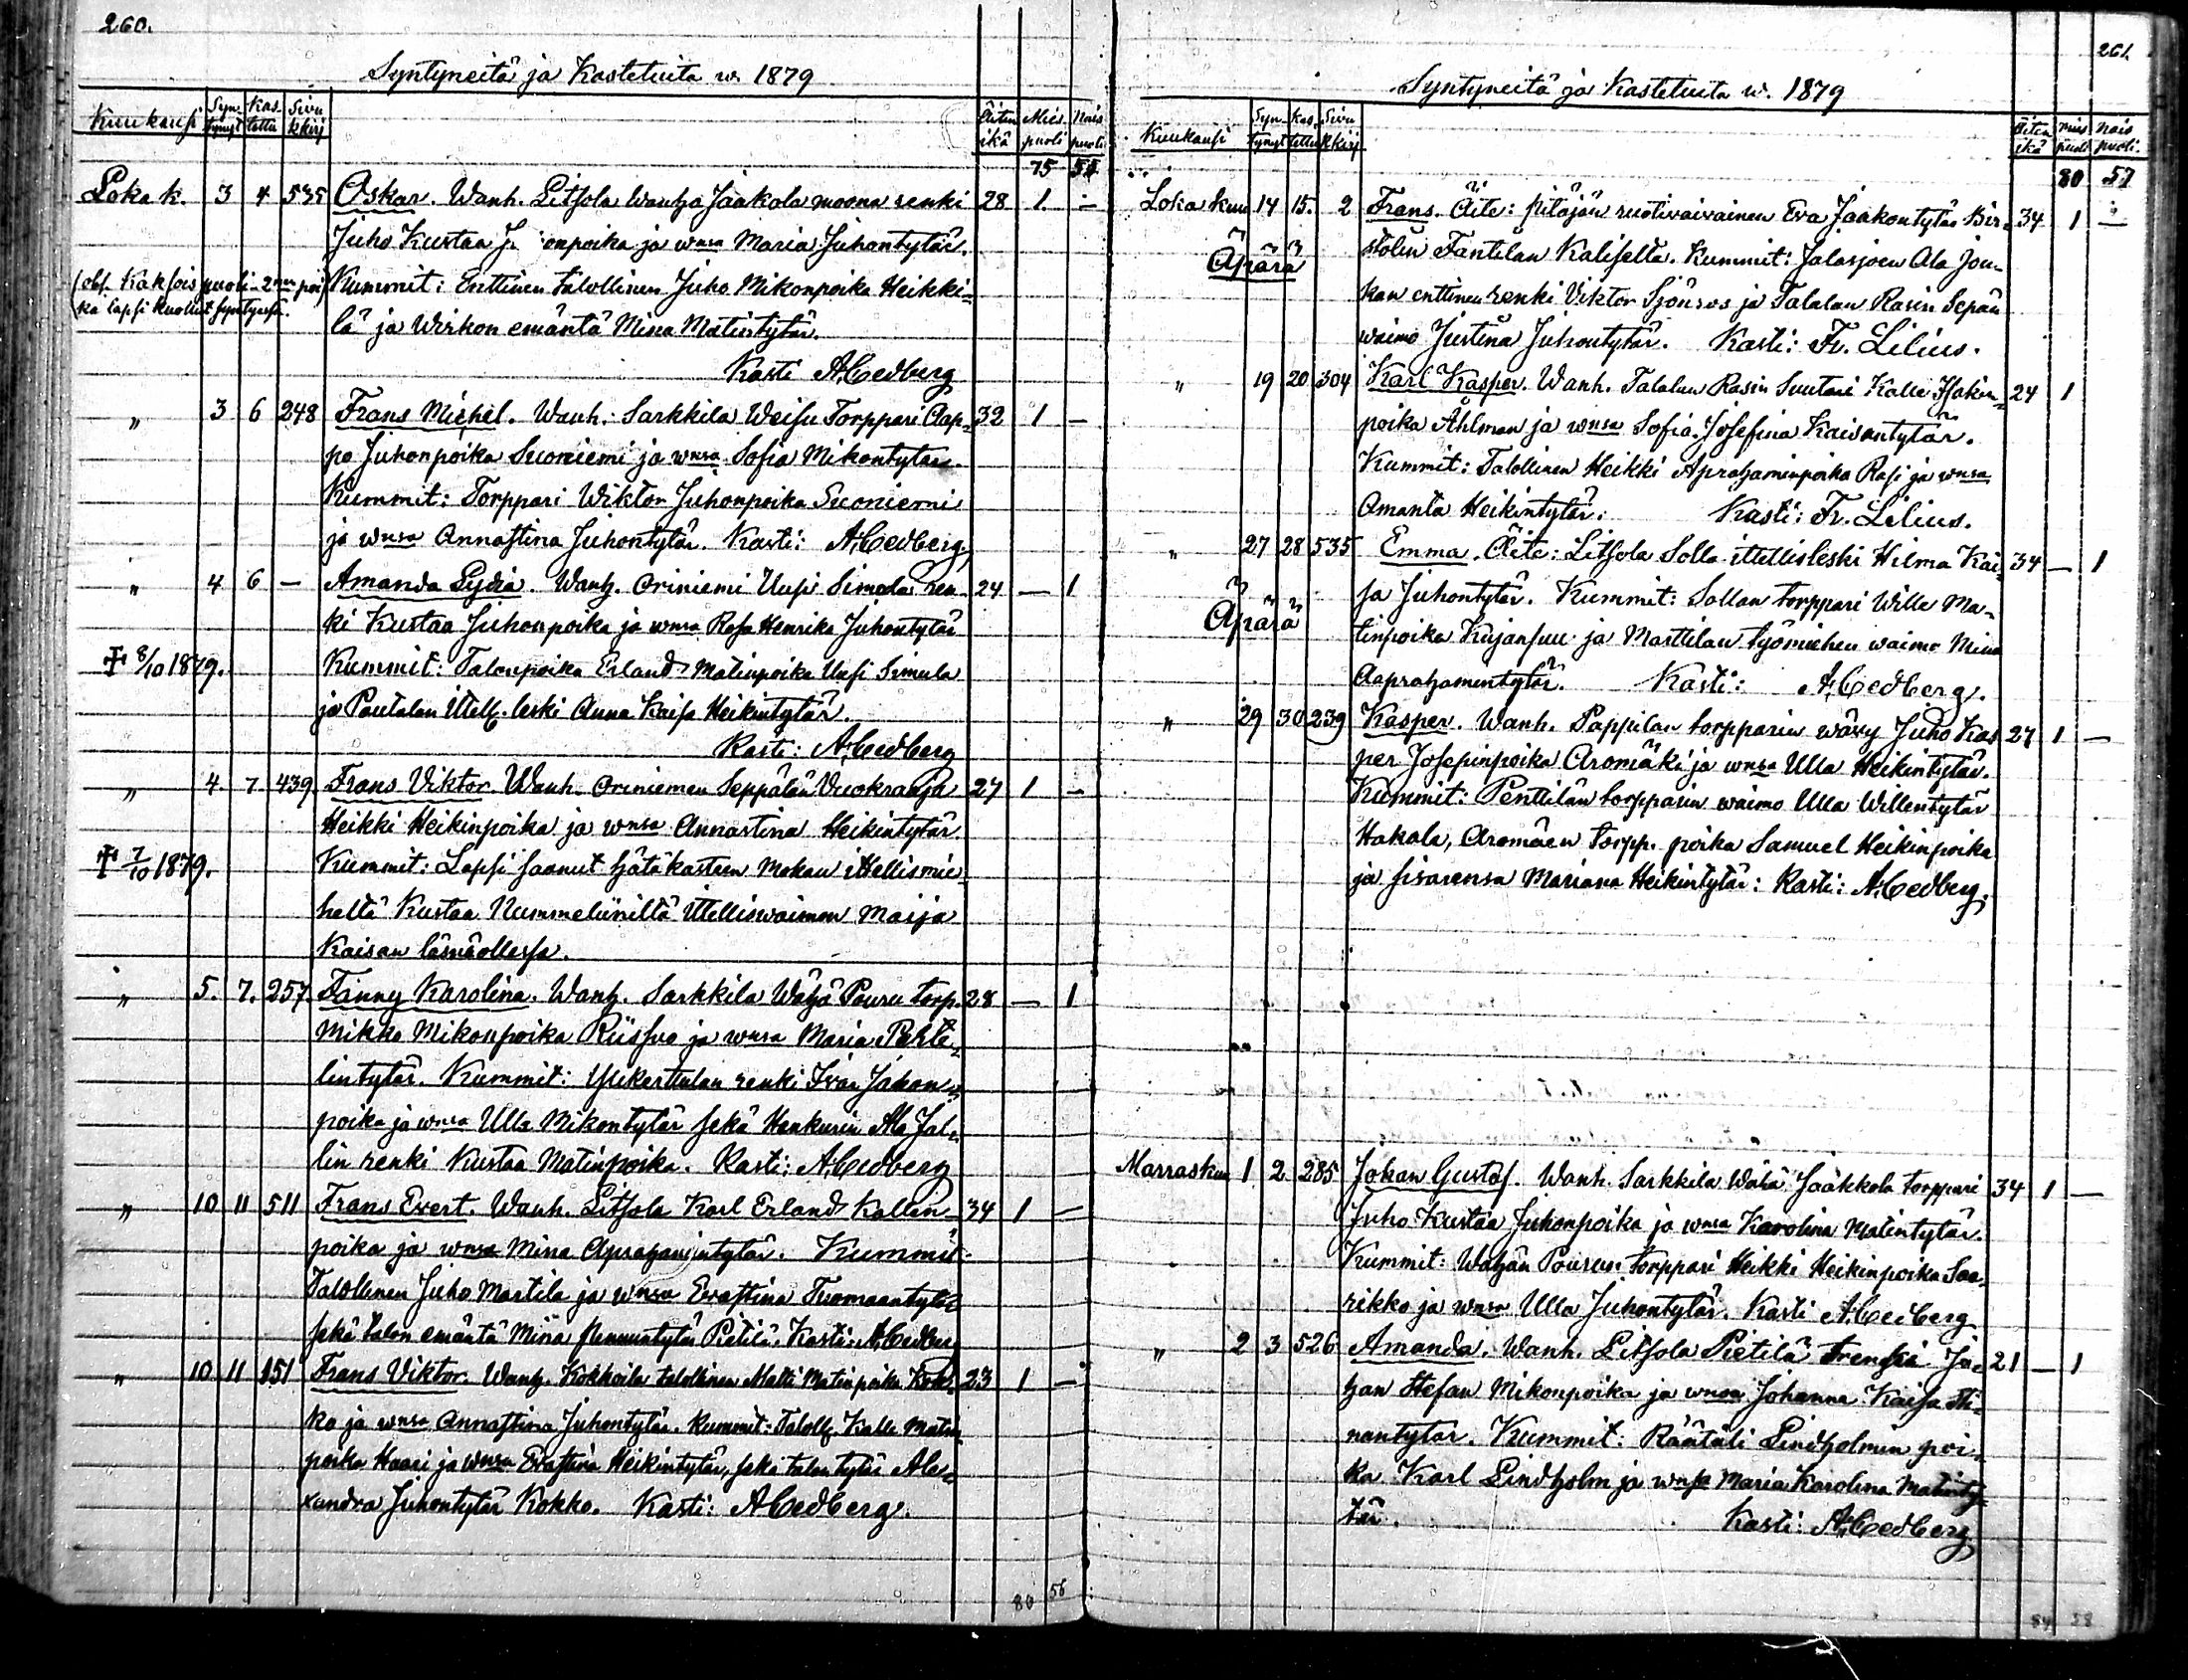 260.
Syntyneitä ja Kastetuita w. 1879
Kuukausi Syntynyt Kastettu Sivu kkirj Äiten ikä Mies puoli Nais puoli
75
Loka k. 3 4 535 Oskar. Wanh. Litsola Wanha Jaakola moona renki 28 1. —
Juho Kustaa ja wmsa Maria Juhontytär.
(obs. Kaksois puoli- 2nen poi- Kummit: Enttinen talollinen Juho Mikonpoika Heikki-
ka lapsi kuollut syntyessä. lä ja Wirkon emäntä Miina Matintytär.
Kasti A. Cedberg
" 3 6 248 Frans Michel. Wanh: Sarkkila Weisu Torppari Aap- 32 1 —
po Juhonpoika Suoniemi ja wmsa Sofia Mikontytär.
Kummit: Torppari Wiktor Juhonpoika Suoniemi
ja wmsa Annastina Juhontytär. Kasti: A. Cedberg.
" 4 6 — Amanda Lydia. Wanh. Oriniemi Uusi Simola ren- 24 — 1
ki Kustaa Juhonpoika ja wmsa Rosa Henrika Juhontytär
✝ 8/10 1879. Kummit: Talonpoika Erland Matinpoika Uusi Simula
ja Pautalan Itell. leski Anna Kaisa Heikintytär.
Kasti: A. Cedberg
" 4 7 439 Frans Viktor. Wanh. Oriniemen Seppälän Vuokraaja 27 1 —
Heikki Heikinpoika ja wmsa Annastina Heikintytär
✝ 7/10 1879. Kummit: Lapsi saanut hätäkasteen Makan ittellismie-
heltä Kustaa Nummeliiniltä Itelliswaimon Maija
Kaisan läsnäollessa.
" 5. 7. 257 Fanny Karolina. Wanh. Sarkkila Wähä Pouru torp. 28 — 1
Mikko Mikonpoika Riissuo ja wmsa Maria Pertte-
lintytär. Kummit: Ylikerttulan renki Ivar Juhon-
poika ja wmsa Ulla Mikontytär sekä Hankurin Ala Jal-
lin renki Kustaa Matinpoika. Kasti: A. Cedberg
" 10 11 511 Frans Evert. Wanh. Litsola Karl Erland Kallen- 34 1 —
poika ja wmsa Miina Aprahamintytär. Kummit:
Talollinen Juho Martila ja wmsa Evastina Tuomaantytär
sekä talon emäntä Miina Pietilä. Kasti: A. Cedberg
" 10 11 151 Frans Viktor. Wanh. Kokkoila talollinen Matti Matinpoika Kok- 23 1 —
ko ja wmsa Annastina Juhontytär. Kummit: Taloll. Kalle Matin-
poika Haari ja wmsa Evastina Heikintytär, sekä talon tytär Ale-
xandra Juhontytär Kokko. Kasti: A. Cedberg.
80 56
261.
Syntyneitä ja Kastetuita w. 1879
Kuukausi Syntynyt Kastettu Sivu kkirj Äiten ikä mies puoli Nais puoli.
80 57
Loka kuu 14 15. 2 Frans. Äite: pitäjän ruotivaivainen Eva Jaakontytär Bir- 34 1 —
Äpärä stölin Fäntilän Kaliselta. Kummit: Jalasjoen Ala Jou-
kan enttinen renki Viktor Sjöroos ja Talalan Rasin Sepän
waimo Justina Juhontytär. Kasti: Fr. Lilius.
" 19 20 304 Karl Kasper. Wanh. Talalan Rasin Suutari Kalle Isakin- 24 1
poika Ahlman ja wmsa Sofia Josefina Kaivantytär.
Kummit: Talollinen Heikki Aprahaminpoika Rasi ja wmsa
Amanta Heikintytär. Kasti: Fr. Lilius.
" 27 28 535 Emma. Äite: Litsola Solla ittellisleski Hilma Kai- 34 — 1
Äpärä sa Juhontytär. Kummit: Sollan torppari Wille Ma-
tinpoika Kujansuu ja Marttilan työmiehen waimo Miina
Aaprahamintytär. Kasti: A. Cedberg.
" 29 30 239 Kasper. Wanh. Pappilan torpparin wäwy Juho Kas- 27 1 —
per Josepinpoika Aromäki ja wmsa Ulla Heikintytär.
Kummit: Penttilän torpparin waimo Ulla Willentytär
Hakala, Aromäen torpp. poika Samuel Heikinpoika
ja sisarensa Mariana Heikintytär: Kasti: A. Cedberg.
Marraskuu 1 2 285 Johan Gustaf. Wanh. Sarkkila Wähä Jaakkola torppari 34 1 —
Juho Kustaa Juhonpoika ja wmsa Karolina Matintytär.
Kummit: Wähän Pourun torppari Heikki Heikinpoika Saa-
rikko ja wmsa Ulla Juhontytär. Kasti A. Cedberg
" 2 3 526 Amanda. Wanh. Litsola Pietilä trenki Ju- 21 — 1
han Stefan Mikonpoika ja wmsa Johanna Kaisa Sti-
nantytär. Kummit: Räätäli Lindholmin poi-
ka Karl Lindholm ja wmsa Maria Karolina Matinty-
tär. Kasti: A. Cedberg
84 58